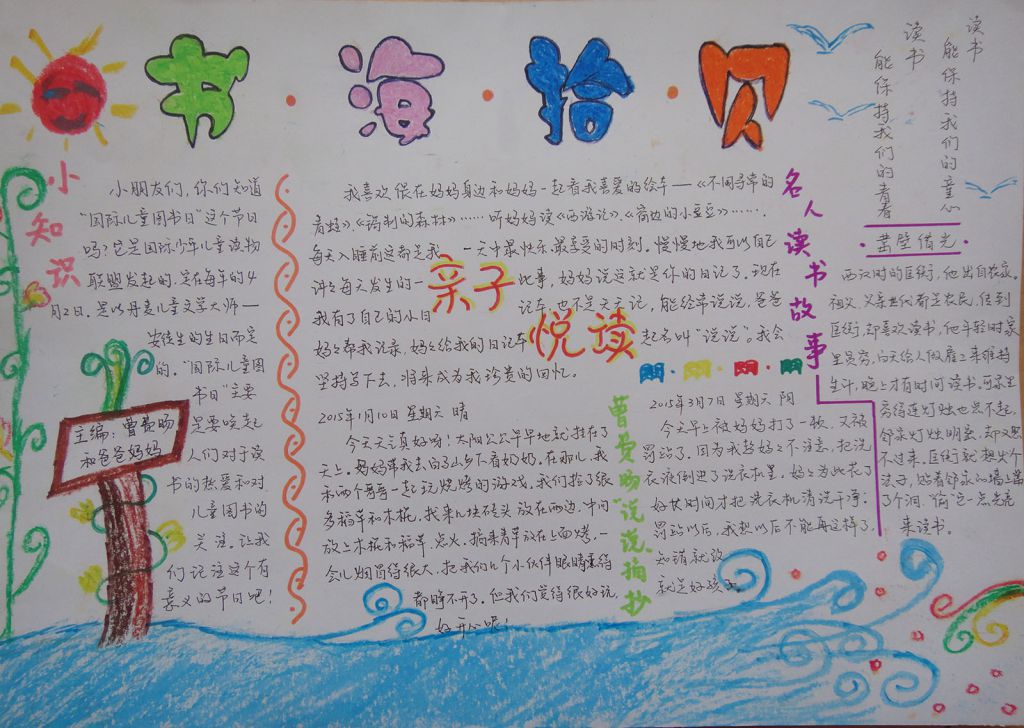 书·海·拾·贝
小知识
小朋友们,你们知道
“国际儿童图书日”这个节日
吗?它是国际少年儿童读物
联盟发起的.是在每年的4
月2日.是以丹麦儿童文学大师一
安徒生的生日而定
的.“国际儿童图
书日”主要
是要唤起
人们对于读
书的热爱和对
儿童图书的
关注.让我
们记住这个有
意义的节日吧!
主编:曹贵旸
和爸爸妈妈
我喜欢偎在妈妈身边和妈妈一起看我喜爱的绘本—《不同寻常的
青蛙》、《海豹的森林》……听妈妈读《西游记》、《窗边的小豆豆》……
每天入睡前这都是我 一天中最快乐.最享受的时刻.慢慢地我可以自己
讲讲每天发生的一 些事,妈妈说这就是你的日记了.现在
我有了自己的小日 记本,也不是天天记,能经常说说,爸爸
妈妈帮我记录.妈妈给我的日记本 起名叫“说说”。我会
坚持写下去.将来成为我珍贵的回忆。
亲子
悦读
2015年1月10日 星期六 晴
今天天气真好啊!太阳公公早早地就挂在了
天上.妈妈带我去白了山乡下看奶奶.在那儿,我
和两个哥哥一起玩烧烤的游戏.我们拾了很
多稻草和木棍.找来几块砖头放在两边.中间
放上木棍和稻草.点火.摘来青草放在上面烤.一
会儿烟冒得很大.把我们几个小伙伴眼睛熏得
都睁不开了.但我们觉得很好玩
好开心呢!
曹贵旸“说说”摘抄
2015年3月7日 星期六 阴
今天早上被妈妈打了一顿.又被
罚站了.因为我趁妈妈不注意.把洗
衣液倒进了洗衣机里.妈妈为此花了
好长时间才把洗衣机清洗干净.
罚站以后.我想以后不能再这样了.
知错就改
就是好孩子.
名人读书故事
读书
能保持我们的童心
读书
能保持我们的青春
·凿壁借光·
西汉时的匡衡,他出自农家.
祖父、父亲世代都是农民.传到
匡衡.却喜欢读书.他年轻时家
里贫穷.白天给人做雇工来维持
生计.晚上才有时间读书.可家里
穷得连灯烛也点不起.
邻家灯烛明亮.却又照
不过来.匡衡就想出个
法子,贴着邻家的墙上凿
了个洞.“偷”它一点光亮
来读书.